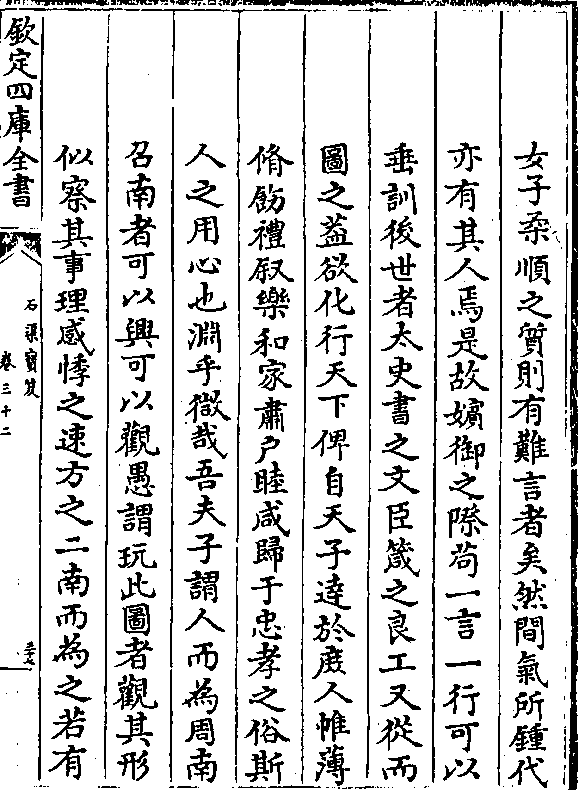 女子柔順之質則有難言者矣然間氣所鍾代
亦有其人焉是故嬪御之際茍一言一行可以
垂訓後世者太史書之文臣箴之良工又從而
圖之葢欲化行天下俾自天子達於庶人帷薄
脩飭禮叙樂和家肅户睦咸歸于忠孝之俗斯
人之用心也淵乎微哉吾夫子謂人而為周南
召南者可以興可以觀愚謂玩此圖者觀其形
似察其事理感悸之速方之二南而為之若有
欽定四庫全書
石渠寳笈
卷三十二